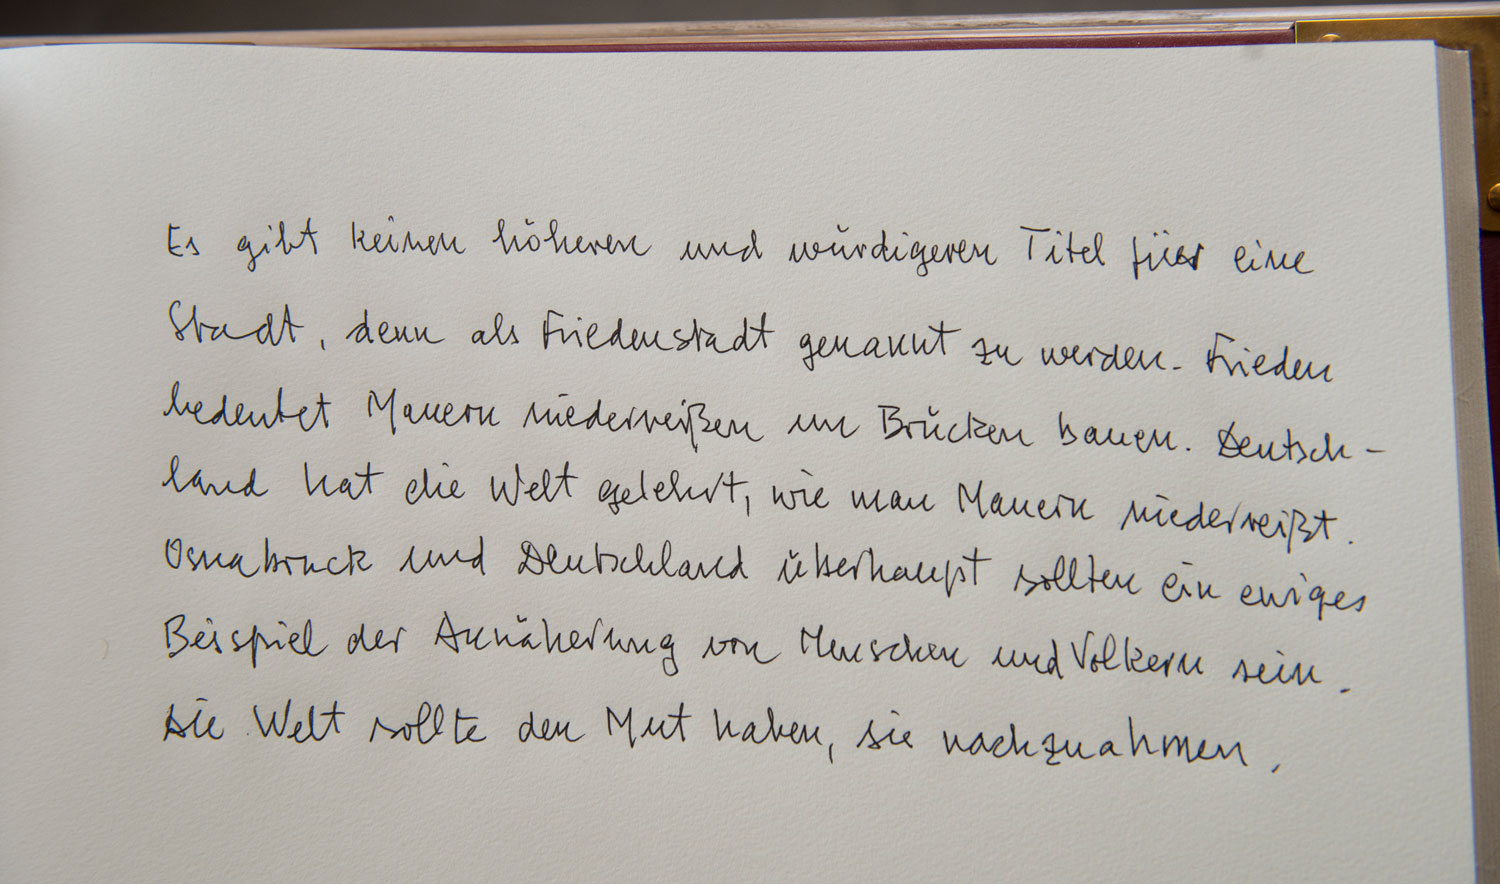 Es gibt keinen höheren und würdigeren Titel für eine
Stadt, denn als Friedenstadt genannt zu werden. Frieden
bedeutet Mauern niederreißen un Brücken bauen. Deutsch-
land hat die Welt gelehrt, wie man Mauern niederreißt.
Osnabruck und Deutschland überhaupt sollten ein ewiges
Beispiel der Annäherung von Menschen und Volkern sein.
Die Welt sollte den Mut haben, sie nachzuahmen.